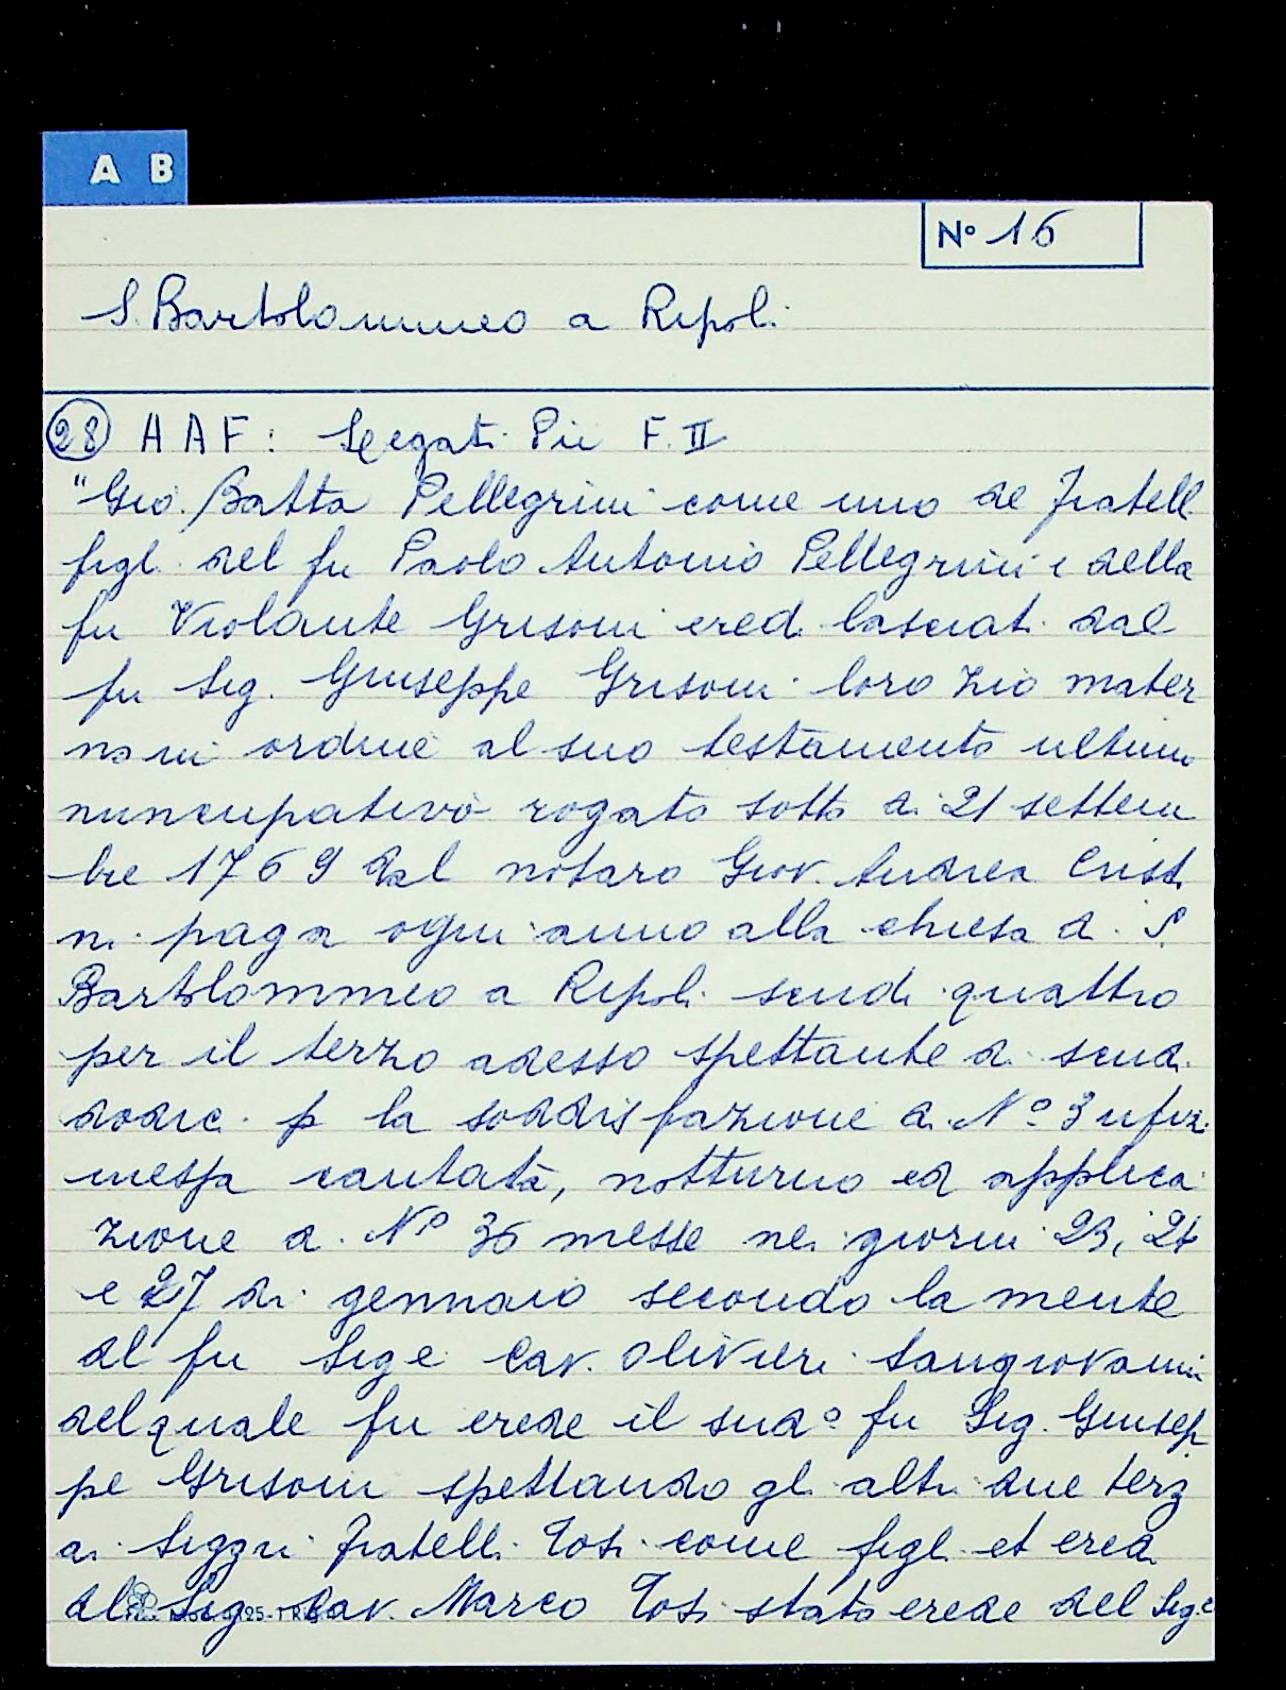 A B
N° 16
S. Bartolommeo a Ripoli
28 A A F: Legati Pii F. II
"Gio. Batta Pellegrini come uno de fratelli
figli del fu Paolo Antonio Pellegrini e della
fu Violante Grisoni eredi lasciati dal
fu Sig. Giuseppe Grisoni loro zio mater
no in ordine al suo testamento ultimo
nuncupativo rogato sotto di 21 settem
bre 1769 dal notaro Giov. Andrea Cristi
ni paga ogni anno alla chiesa di S.
Bartolommeo a Ripoli scudi quattro
per il terzo adesso spettante di scudi
dodici p la soddisfazione di N° 3 ufizi
messa cantata, notturno ed applica
zione di N° 36 messe nei giorni 23, 24
e 27 di gennaio secondo la mente
del fu Sige Cav. Olivieri Sangiovanni
del quale fu erede il sud° fu Sig. Giusep
pe Grisoni spettando gli altri due terzi
ai Siggri fratelli Tosi come figli et eredi
del Sig. Cav. Marco Tosi stato erede del Sig.e